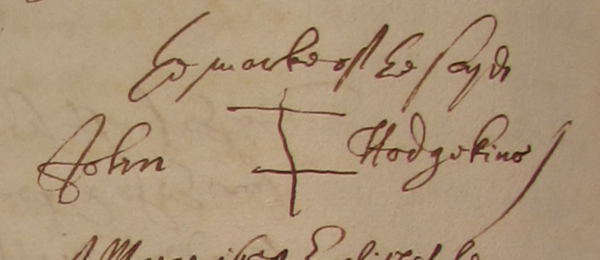 The marke of the sayd
John Hodgekins